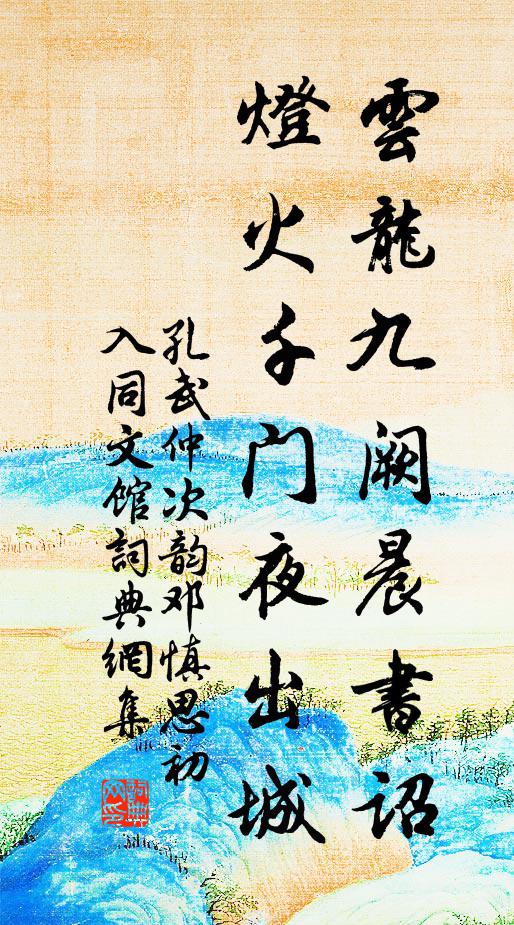 雲龍九阙晨書诏
燈火千门夜出城
孔武仲次韵邓慎思初
入同文館詞典網集